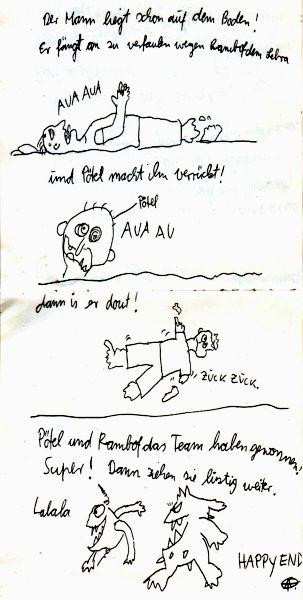 Der Mann liegt schon auf dem Boden!
Er fängt an zu verfaulen wegen Rambof dem Lebra
AUA AUA
und Pötel macht ihn verrückt!
Pötel
AUA AU
dann is er dout!
ZÜCK ZÜCK.
Pötel und Rambof das Team haben gewonnen!
Super! Dann ziehen sie lustig weiter.
Lalala
HAPPY END